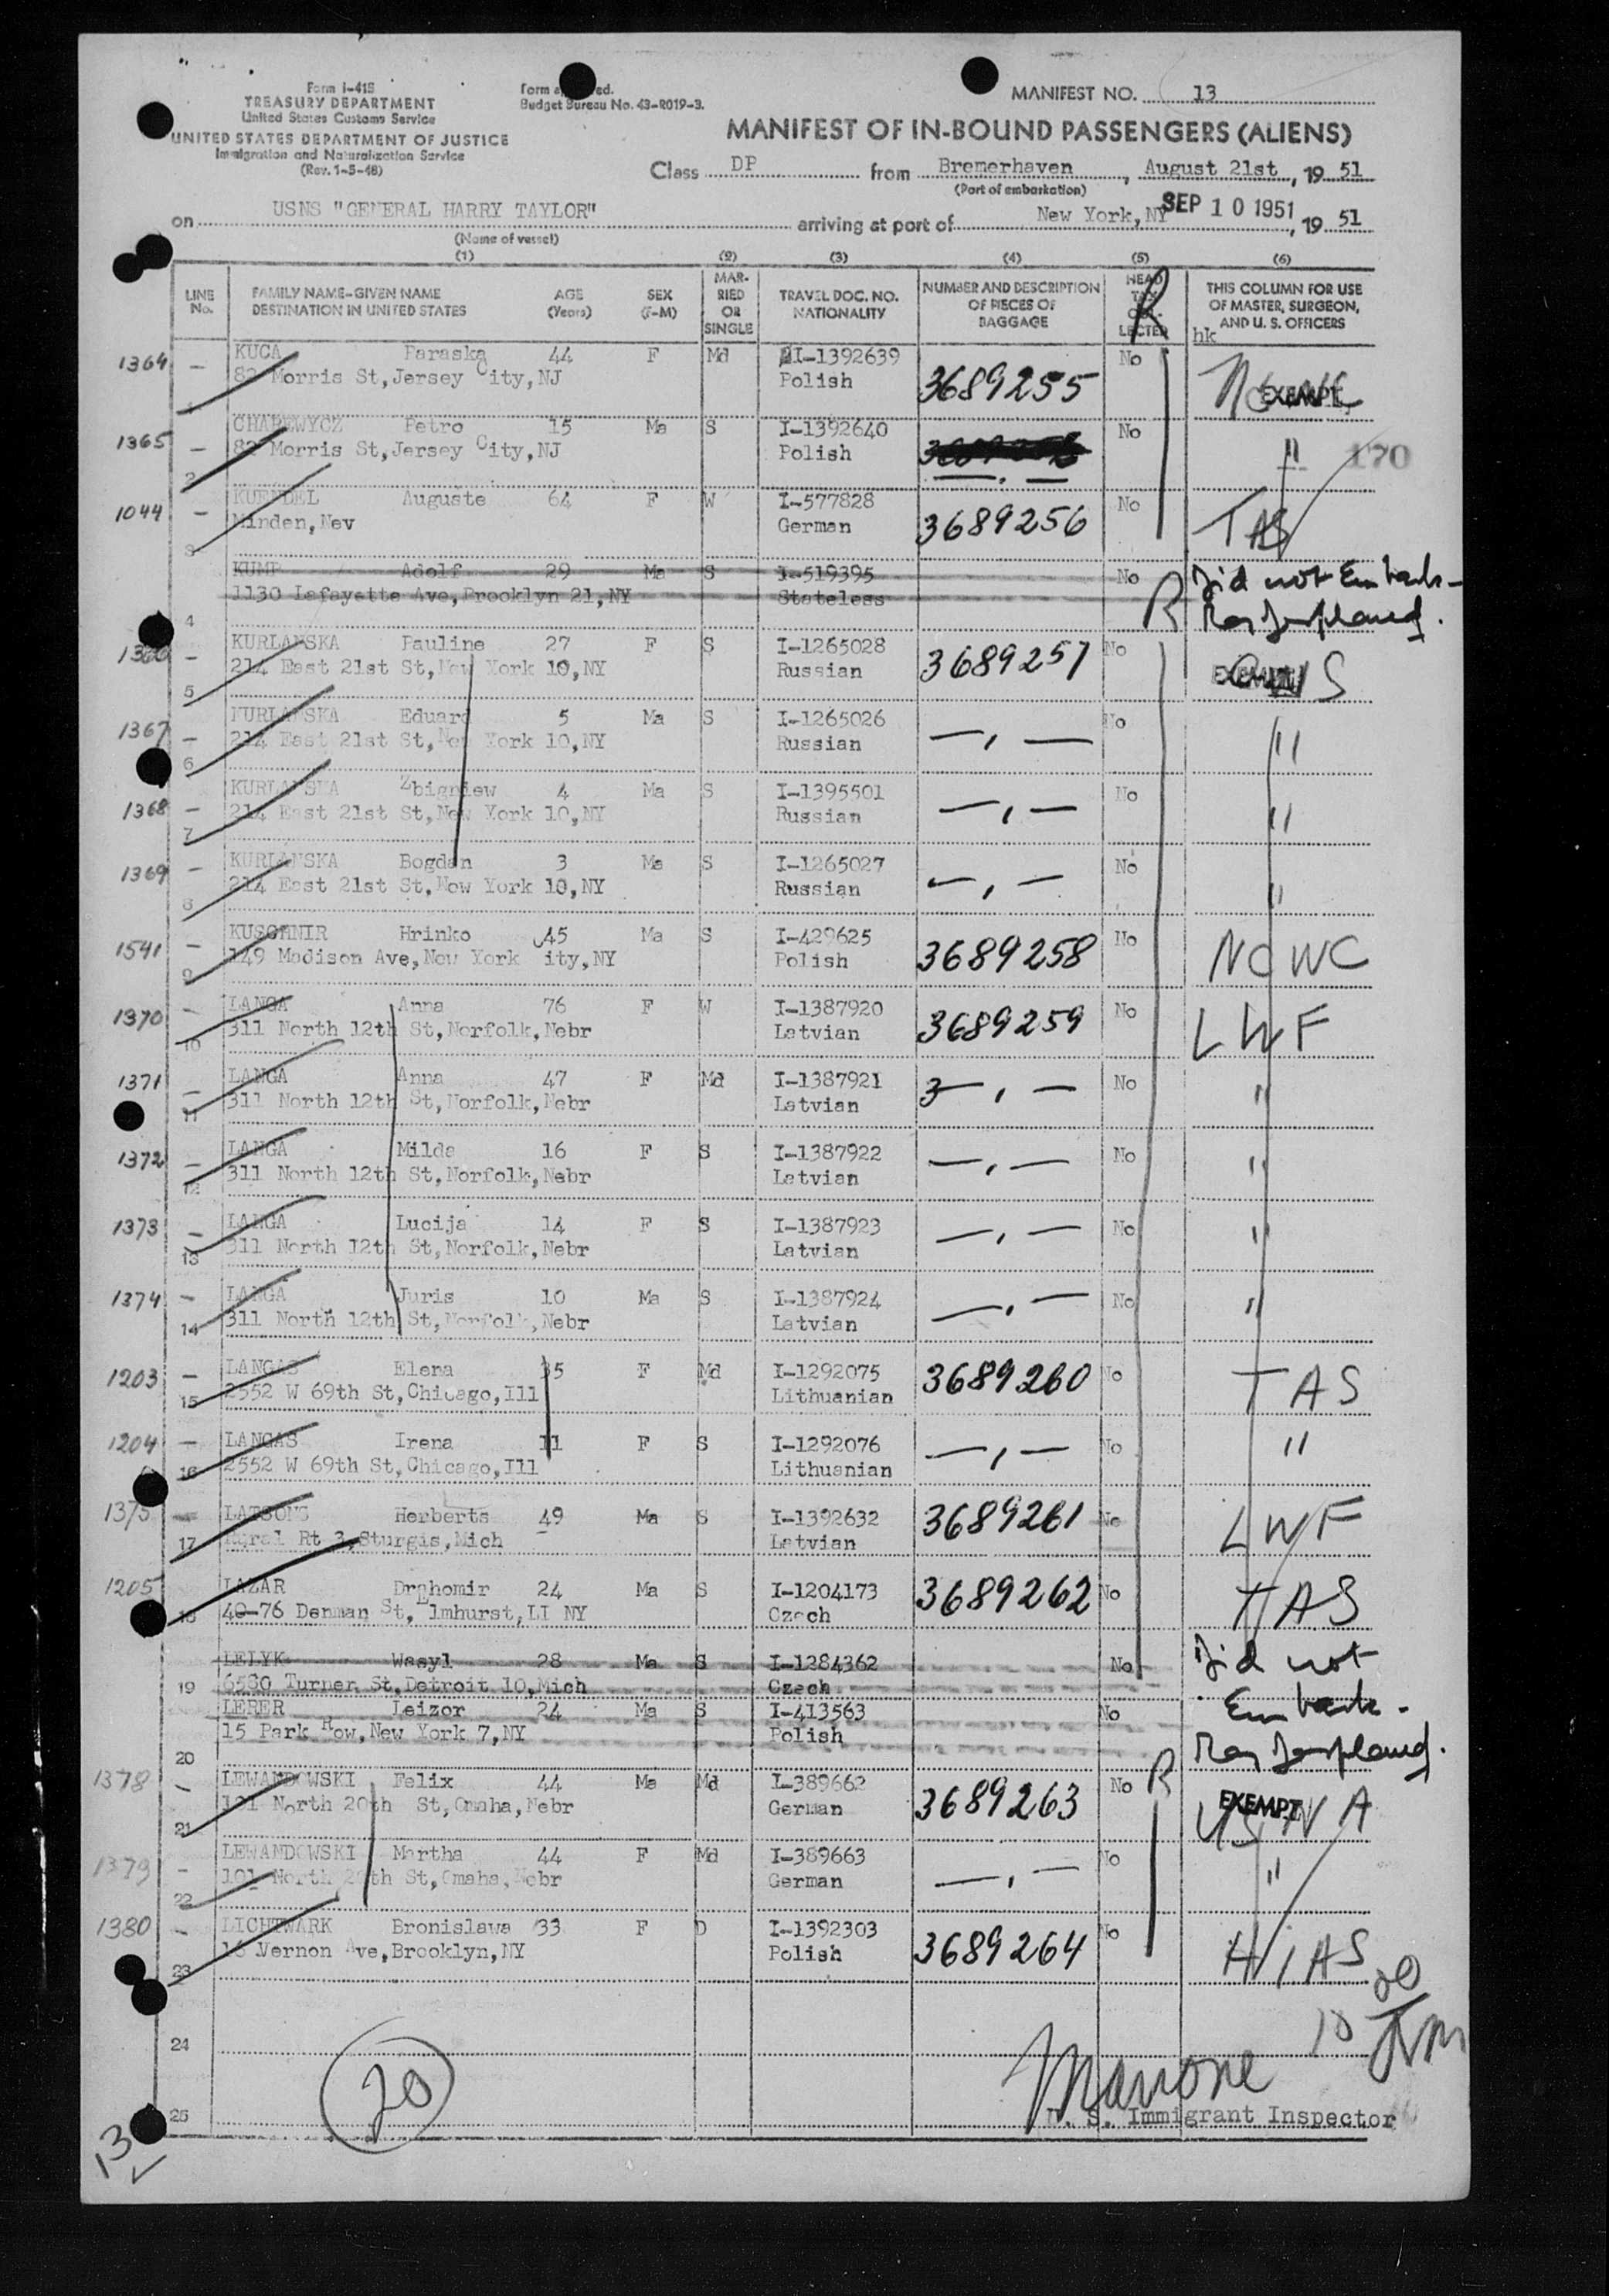 Form I-415
TREASURY DEPARTMENT
United States Customs Service
UNITED STATES DEPARTMENT OF JUSTICE
Immigration and Naturalization Service
(Rev. 1-5-48)
Budget Bureau No. 43-R019-3.
MANIFEST NO. 13
MANIFEST OF IN-BOUND PASSENGERS (ALIENS)
Class DP from Bremerhaven, August 21st, 19 51
(Port of embarkation)
on USNS "GENERAL HARRY TAYLOR" arriving at port of New York, NY SEP 10 1951, 19 51
(Name of vessel)
(1) (2) (3) (4) (5) (6)
LINE No. FAMILY NAME-GIVEN NAME DESTINATION IN UNITED STATES AGE (Years) SEX (F-M) MARRIED OR SINGLE TRAVEL DOC. NO. NATIONALITY NUMBER AND DESCRIPTION OF PIECES OF BAGGAGE HEAD TAX COLLECTED THIS COLUMN FOR USE OF MASTER, SURGEON, AND U. S. OFFICERS
R hk
1364 — KUCA Paraska 44 F Md I-1392639 No
1 82 Morris St, Jersey City, NJ Polish 3689255 EXEMPT
1365 — CHAREWYCZ Petro 15 Ma S I-1392640 No
2 82 Morris St, Jersey City, NJ Polish " 170
1044 — KUENDEL Auguste 64 F W I-577828 No
3 Minden, Nev German 3689256 TAS
KUMP Adolf 29 Ma S I-519395 No R Did not Embark-
4 1130 Lafayette Ave, Brooklyn 21, NY Stateless
1366 — KURLANSKA Pauline 27 F S I-1265028 No
5 214 East 21st St, New York 10, NY Russian 3689257 EXEMPT
1367 — KURLANSKA Eduard 5 Ma S I-1265026 No
6 214 East 21st St, New York 10, NY Russian —,— "
1368 — KURLANSKA Zbigniew 4 Ma S I-1395501 No
7 214 East 21st St, New York 10, NY Russian —,— "
1369 — KURLANSKA Bogdan 3 Ma S I-1265027 No
8 214 East 21st St, New York 10, NY Russian —,— "
1541 — KUSCHNIR Hrinko 45 Ma S I-429625 No
9 149 Madison Ave, New York ity, NY Polish 3689258 NCWC
1370 — LANGA Anna 76 F W I-1387920 No
10 311 North 12th St, Norfolk, Nebr Latvian 3689259 LWF
1371 — LANGA Anna 47 F Md I-1387921 No
11 311 North 12th St, Norfolk, Nebr Latvian —,— "
1372 — LANGA Milda 16 F S I-1387922 No
12 311 North 12th St, Norfolk, Nebr Latvian —,— "
1373 — LANGA Lucija 14 F S I-1387923 No
13 311 North 12th St, Norfolk, Nebr Latvian —,— "
1374 — LANGA Juris 10 Ma S I-1387924 No
14 311 North 12th St, Norfolk, Nebr Latvian —,— "
1203 — LANGAS Elena 35 F Md I-1292075 No
15 2552 W 69th St, Chicago, Ill Lithuanian 3689260 TAS
1204 — LANGAS Irena 11 F S I-1292076 No
16 2552 W 69th St, Chicago, Ill Lithuanian —,— "
1375 — LATSONS Herberts 49 Ma S I-1392632 No
17 Rural Rt 3, Sturgis, Mich Latvian 3689261 LWF
1205 LAZAR Drahomir 24 Ma S I-1204173 No
18 40-76 Denman St, Elmhurst, LI NY Czech 3689262 TAS
LELYK Wasyl 28 Ma S I-1284362 No Did not
19 6580 Turner St, Detroit 10, Mich Czech
LERER Leizor 24 Ma S I-413563 No Embark-
20 15 Park Row, New York 7, NY Polish
1378 — LEWANDOWSKI Felix 44 Ma Md I-389662 No R
21 101 North 20th St, Omaha, Nebr German 3689263 EXEMPT
1379 — LEWANDOWSKI Martha 44 F Md I-389663 No
22 101 North 20th St, Omaha, Nebr German —,— "
1380 — LICHTWARK Bronislawa 33 F D I-1392303 No
23 16 Vernon Ave, Brooklyn, NY Polish 3689264 HIAS
20
24
20
25 U. S. Immigrant Inspector
13